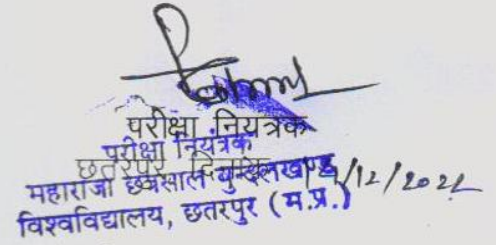 परीक्षा नियंत्रक
परीक्षा नियंत्रक
छतरपुर, दिनांक /12/2022
महाराजा छत्रसाल बुन्देलखण्ड
विश्वविद्यालय, छतरपुर (म.प्र.)